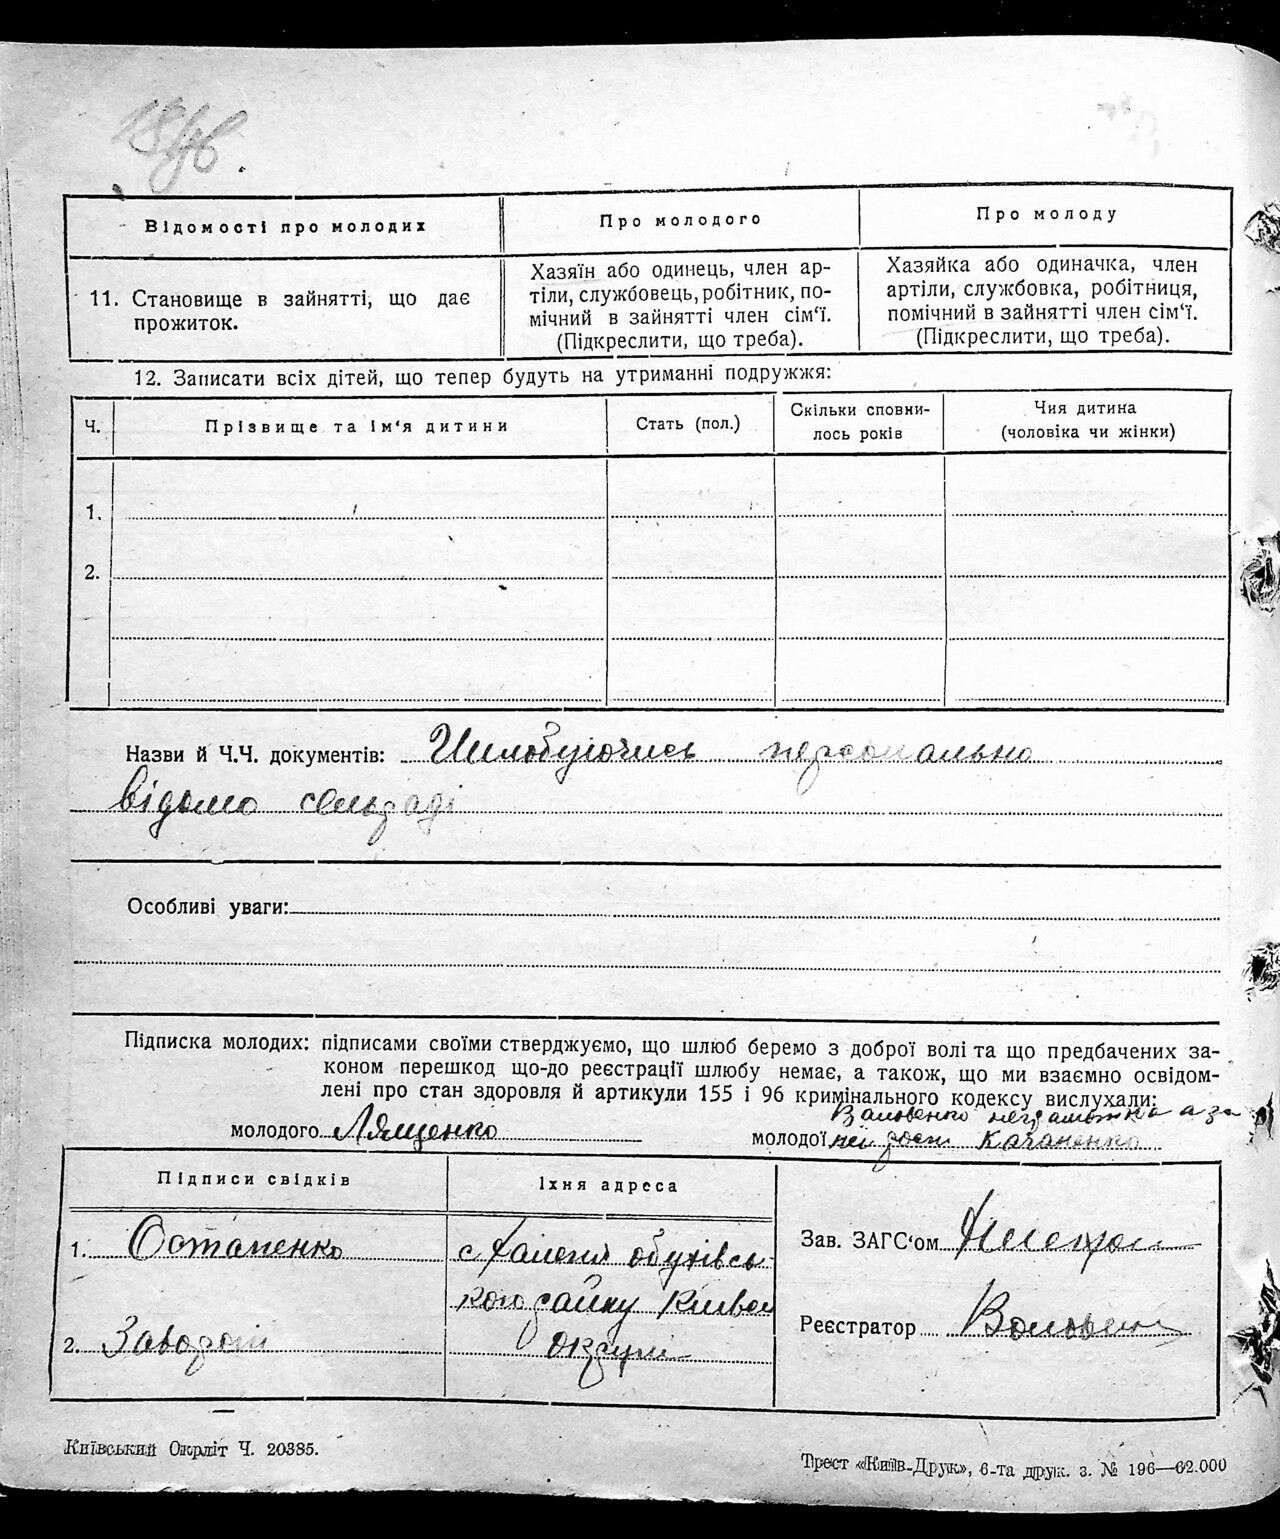 Відомості про молодих
Про молодого
Про молоду
11. Становище в зайнятті, що дає
прожиток.
Хазяїн або одинець, член ар-
тіли, службовець, робітник, по-
мічний в зайнятті член сім'ї.
(Підкреслити, що треба).
Хазяйка або одиначка, член
артіли, службовка, робітниця,
помічний в зайнятті член сім'ї.
(Підкреслити, що треба).
12. Записати всіх дітей, що тепер будуть на утриманні подружжя:
Ч.
Прізвище та ім'я дитини
Стать (пол.)
Скільки сповни-
лось років
Чия дитина
(чоловіка чи жінки)
1.
2.
Назви й Ч.Ч. документів: Шлюбуючись персонально
відомо сельраді
Особливі уваги:
Підписка молодих: підписами своїми стверджуємо, що шлюб беремо з доброї волі та що предбачених за-
коном перешкод що-до реєстрації шлюбу немає, а також, що ми взаємно освідом-
лені про стан здоровля й артикули 155 і 96 кримінального кодексу вислухали:
молодого Лященко
Воловенко неграмотна а за
молодої неї Качаненко
Підписи свідків
Їхня адреса
1. Остапенко
с Халепя обухівсь-
кого району Київсь
округи
2.
Зав. ЗАГС'ом
Реєстратор
Київський Окрліт Ч. 20385.
Трест «Київ-Друк», 6-та друк. з. № 196—62.000